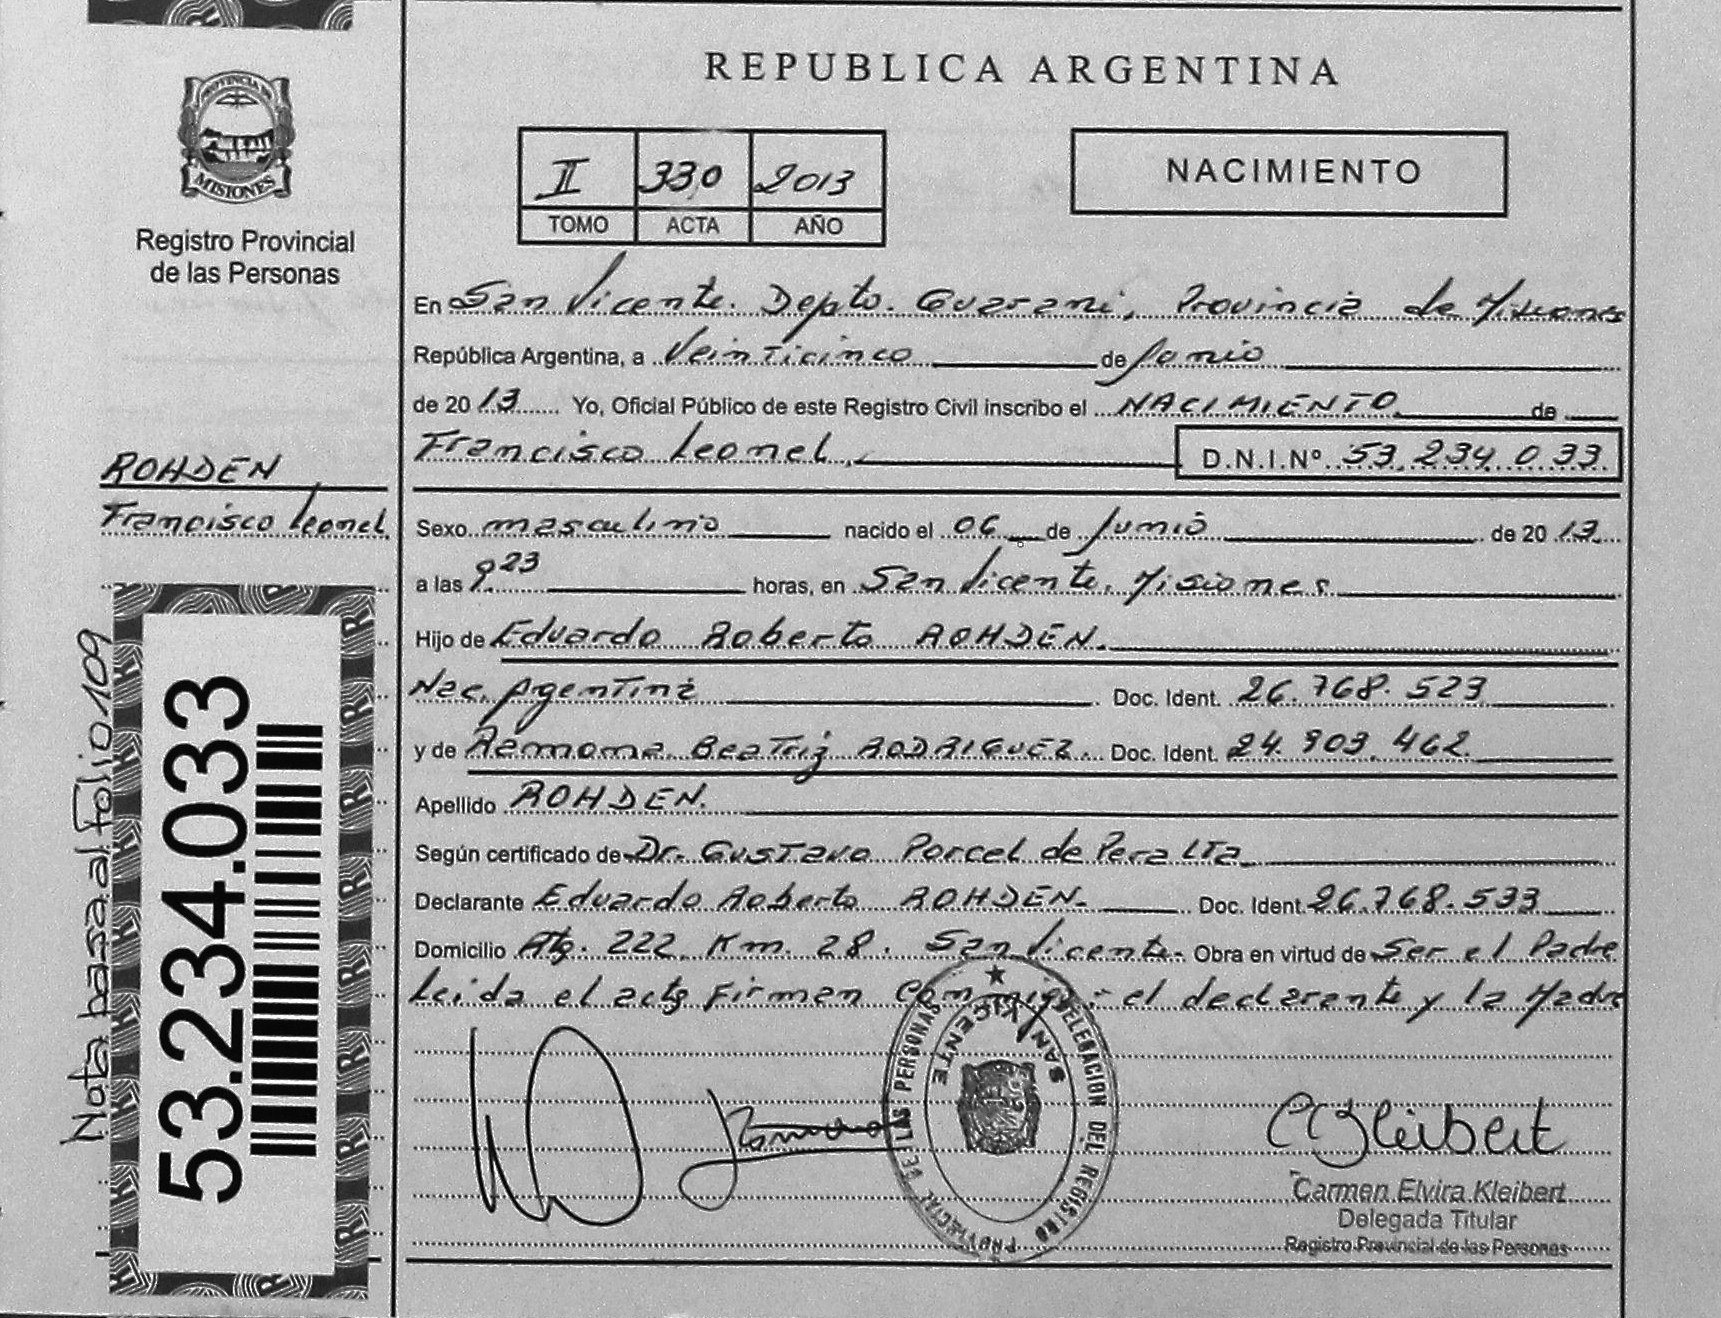 REPUBLICA ARGENTINA
PROVINCIA DE
MISIONES
Registro Provincial
de las Personas
II 330 2013
TOMO ACTA AÑO
NACIMIENTO
En San Vicente. Depto. Guarani, Provincia de Misiones
República Argentina, a Veinticinco de Junio
de 2013 Yo, Oficial Público de este Registro Civil inscribo el NACIMIENTO de
Francisco Leonel. D.N.I.Nº 53.234.033
ROHDEN
Francisco Leonel
Sexo masculino nacido el 06 de Junio de 2013
a las 9.23 horas, en San Vicente, Misiones
Hijo de Eduardo Roberto ROHDEN.
Nac. Argentina Doc. Ident. 26.768.523
y de Beatriz RODRIGUEZ. Doc. Ident. 24.903.462
Apellido ROHDEN.
Según certificado de Dr. Gustavo Porcel de Peralta
Declarante Eduardo Roberto ROHDEN. Doc. Ident. 26.768.533
Domicilio 222 Km. 28. San Vicente. Obra en virtud de Ser el Padre
Leida el acta Firman Conmigo: el declarante y la Madre
Nota basaal Folio 109
53.234.033
DELEGACION DEL REGISTRO PROVINCIAL DE LAS PERSONAS
SAN VICENTE
CBKleibert
Carmen Elvira Kleibert
Delegada Titular
Registro Provincial de las Personas